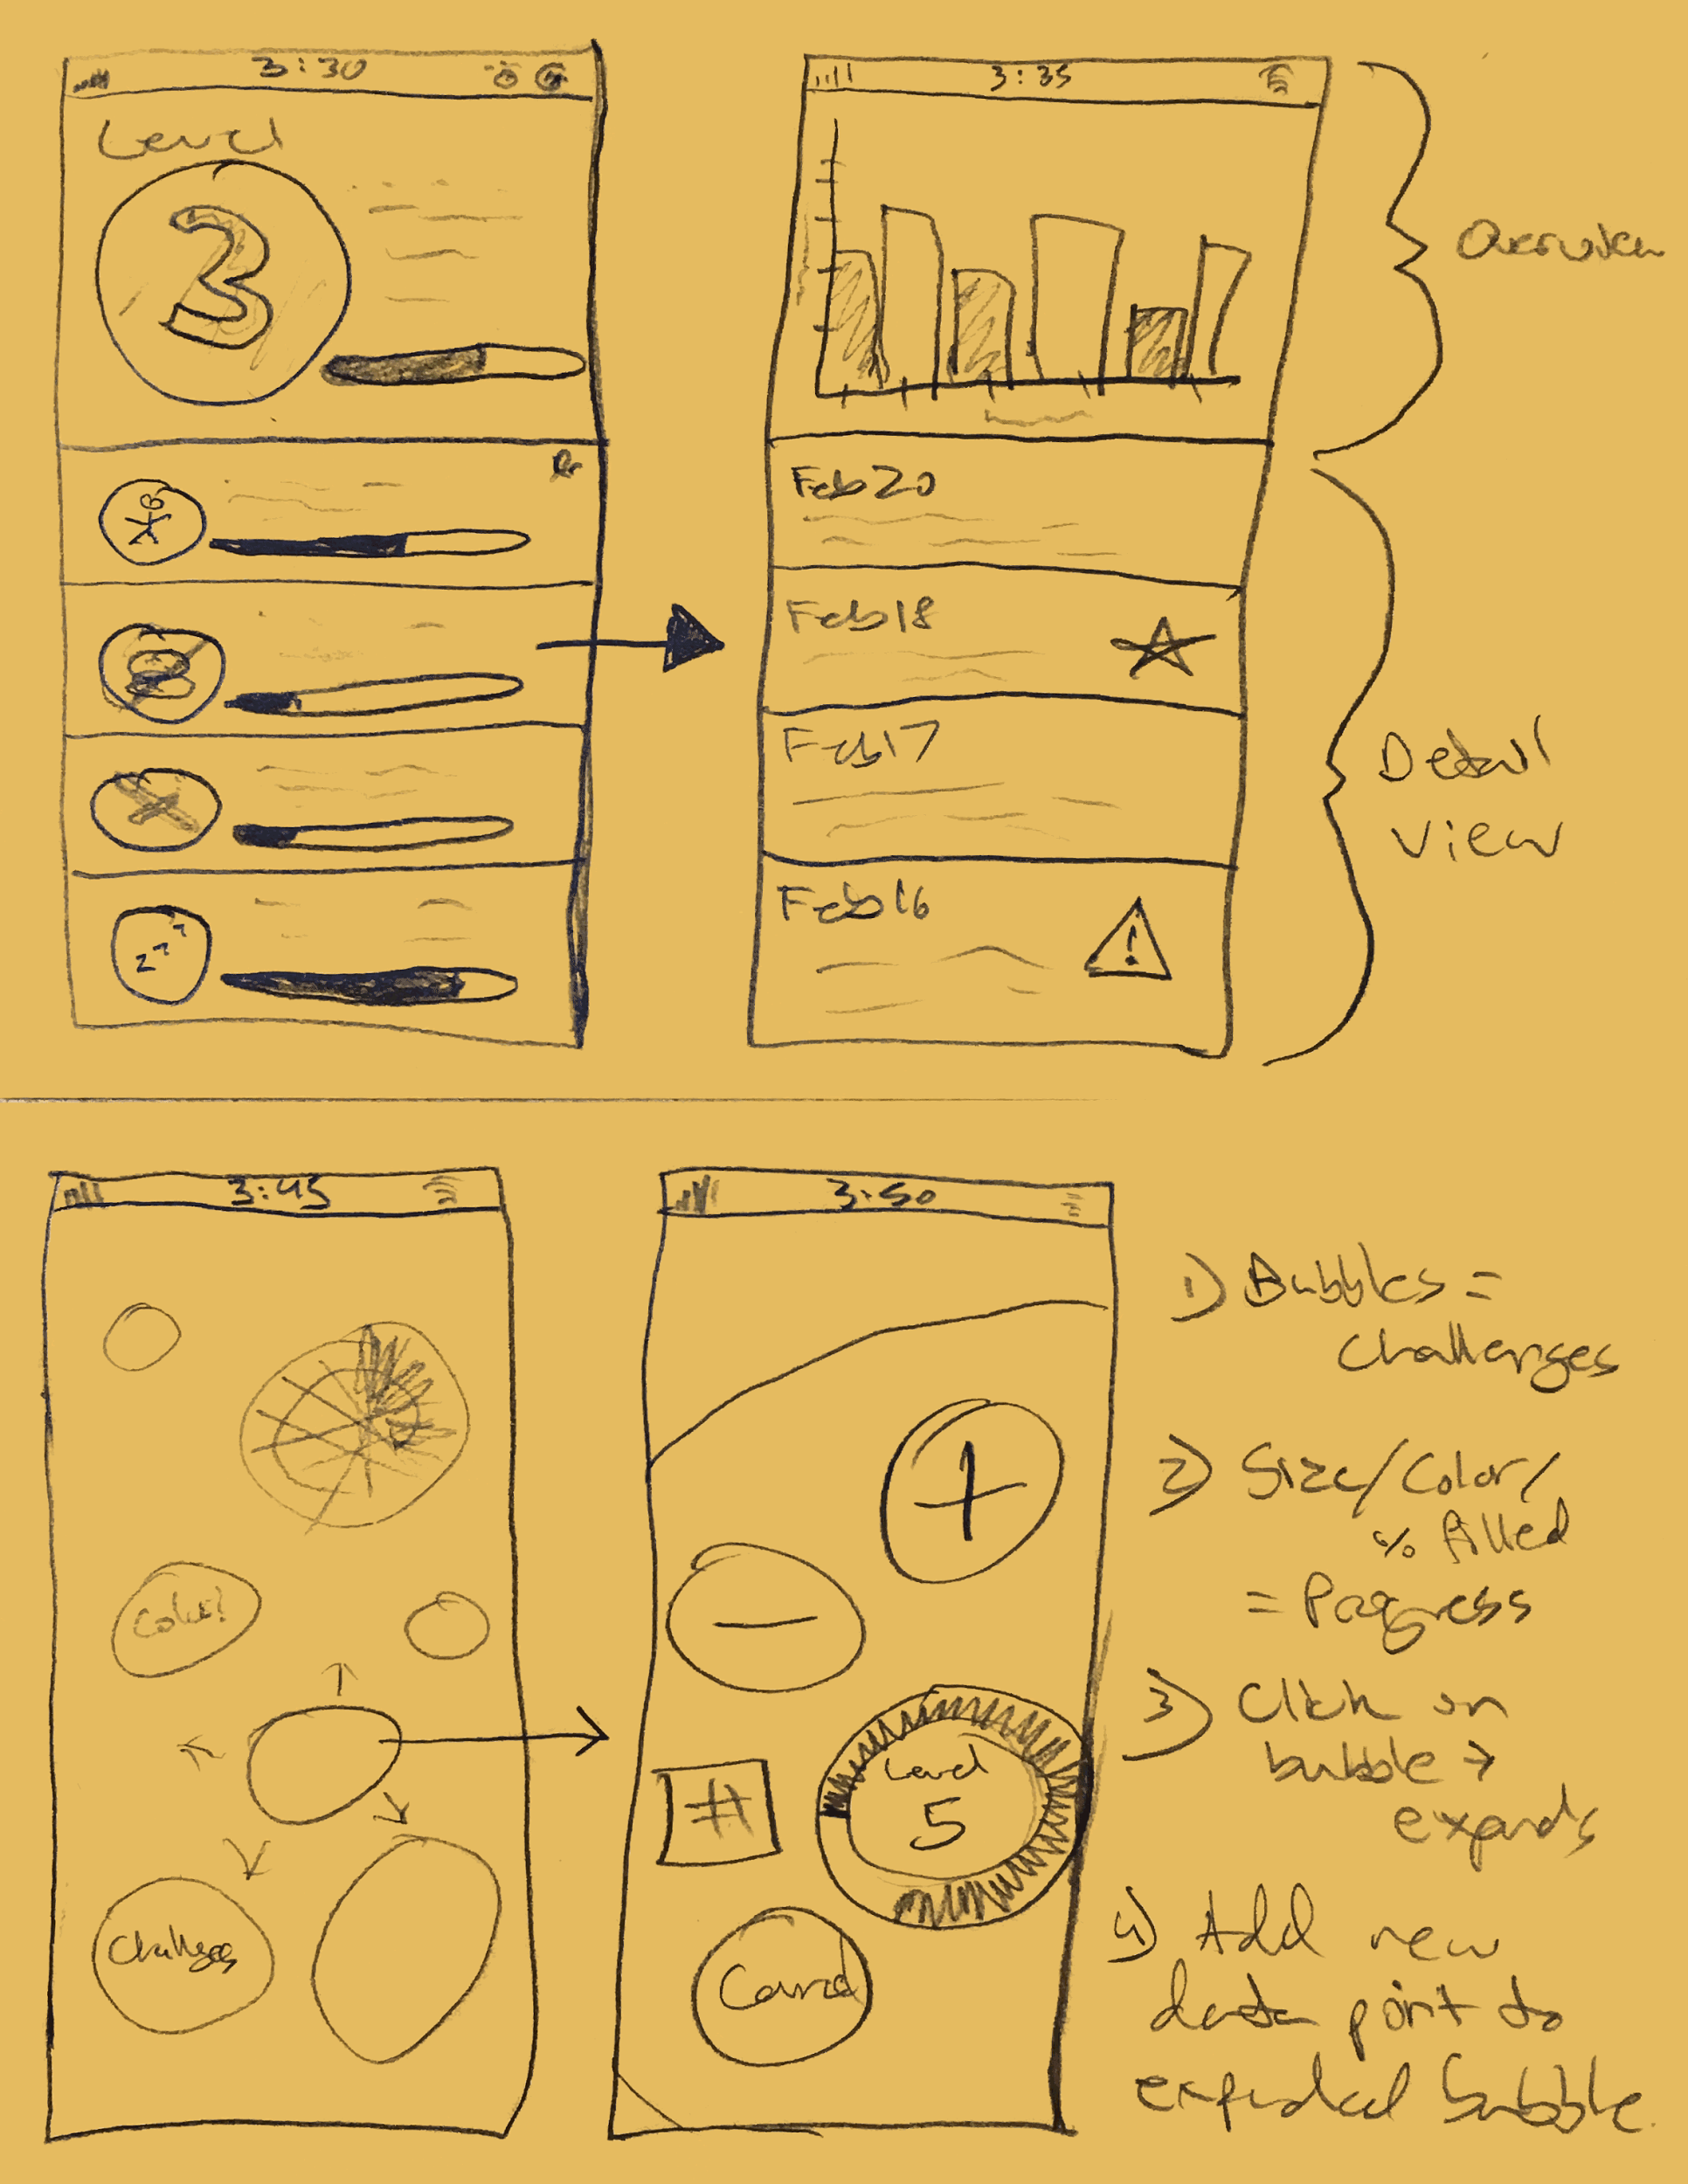 3:30
Level
3
3:35
Overview
Feb 20
Feb 18
Feb 17
Feb 16
!
Detail
View
zzz
3:45
Color?
Challenges
3:50
+
—
#
Level
5
Cancel
1) Bubbles =
Challenges
2) Size/Color/
% filled
= Progress
3) Click on
bubble →
expands
4) Add new
data point to
expanded bubble.